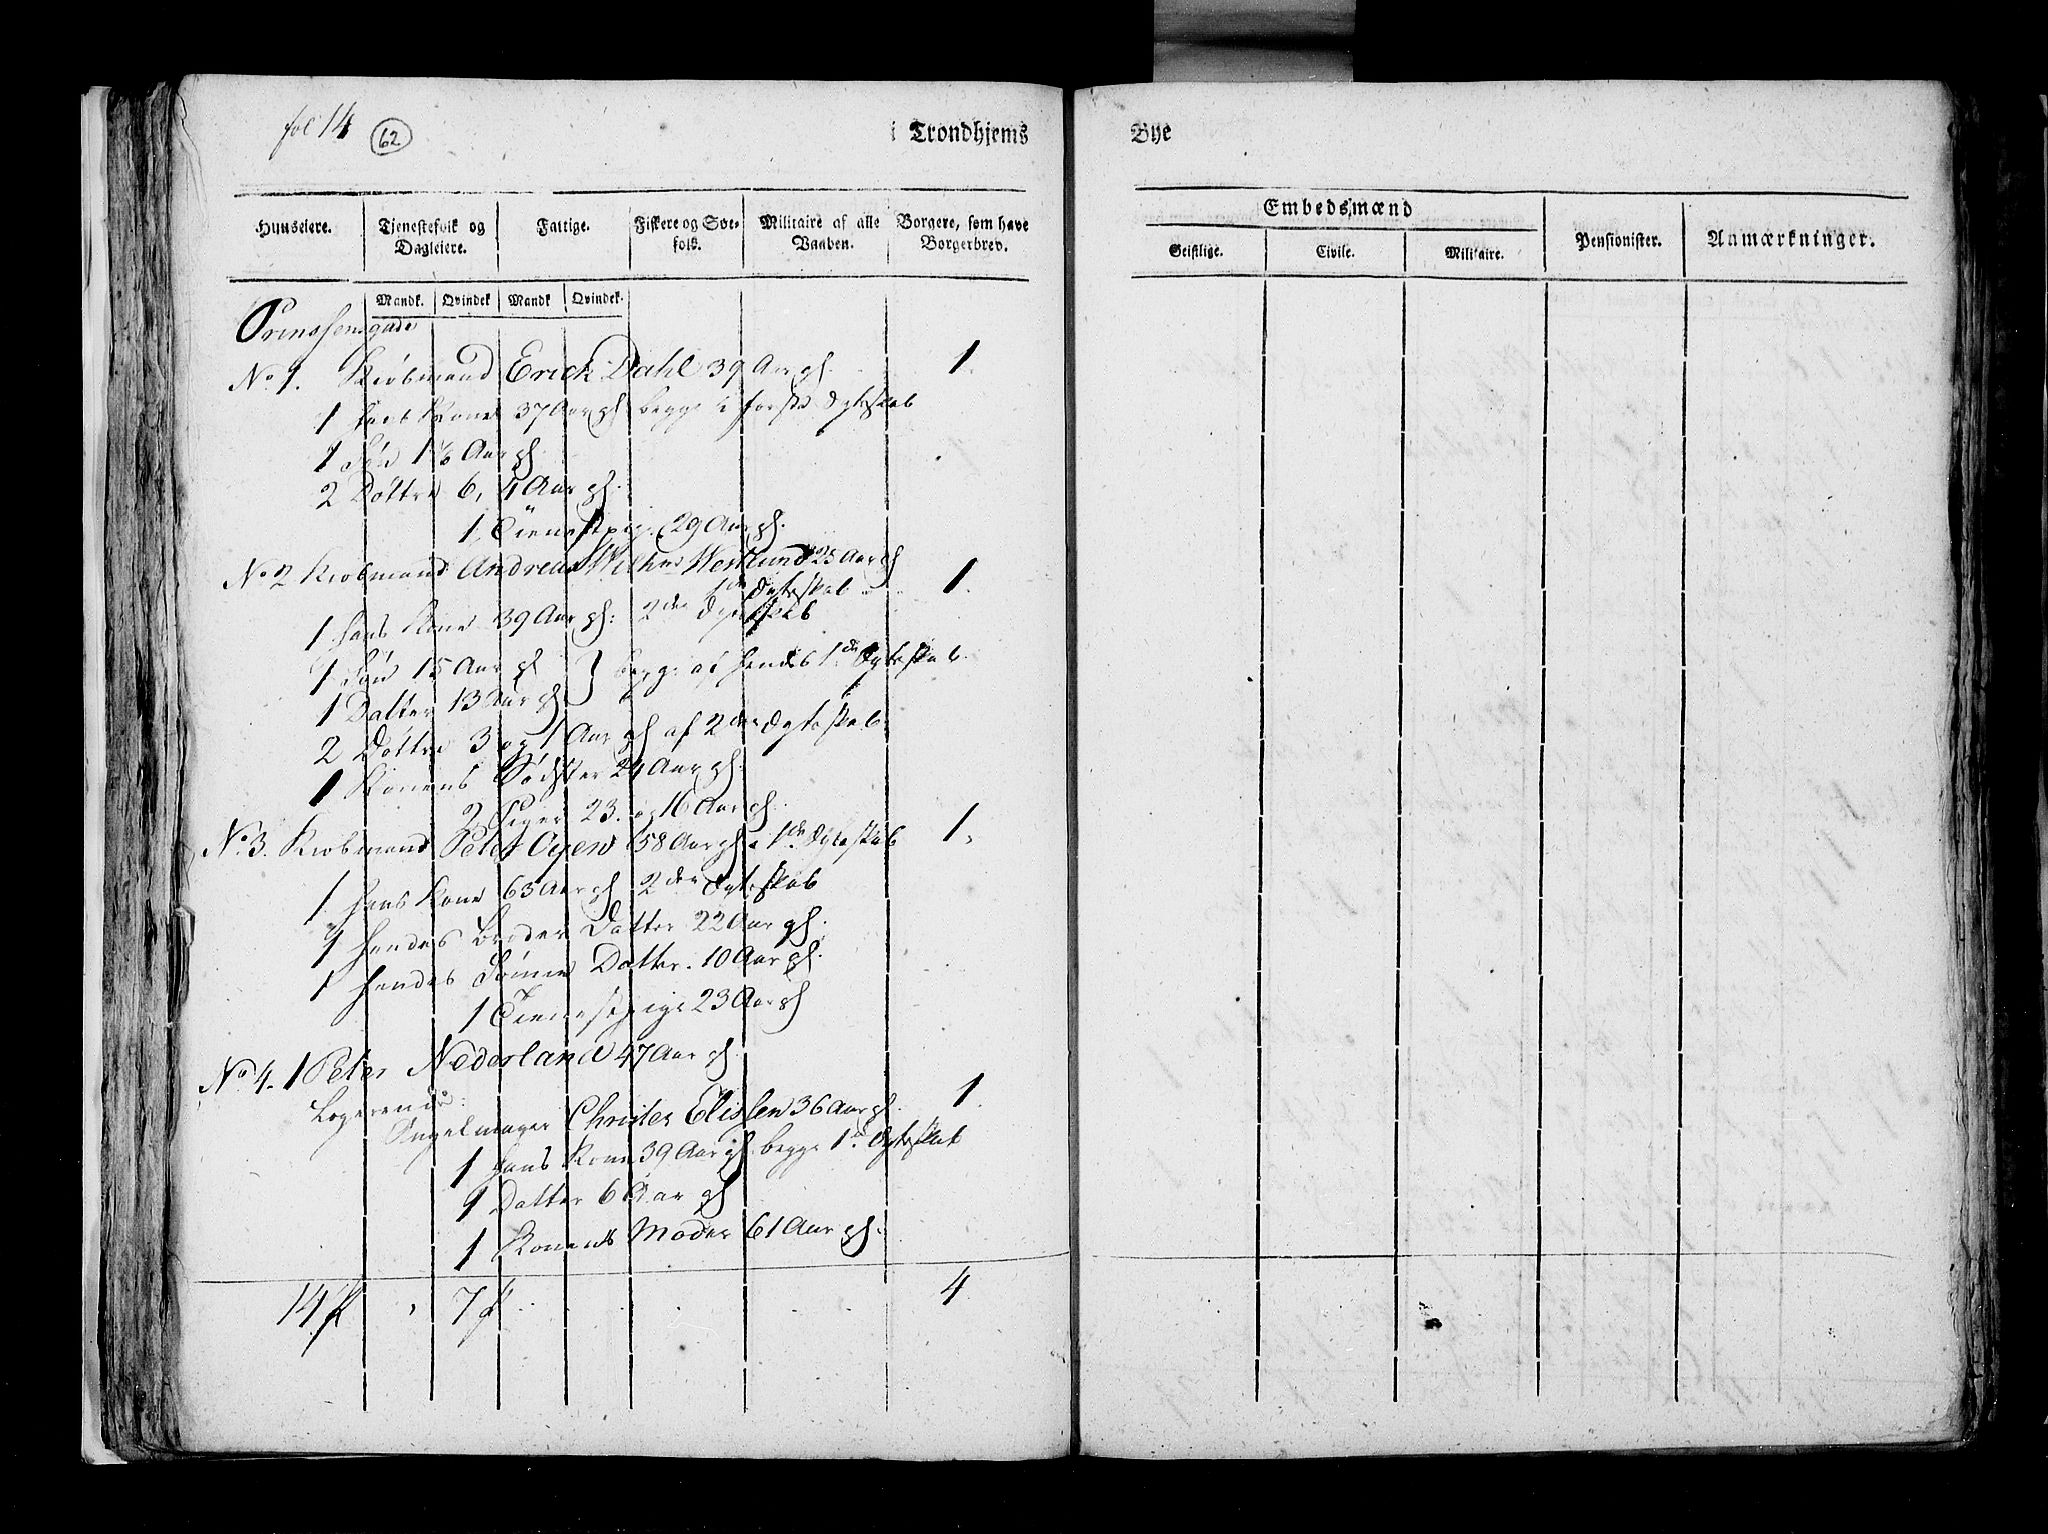 fol 14 62
i Trondhjems Bye
Huuseiere. Tjenestefolk og Dagleiere. Fattige. Fiskere og Søefolk. Militaire af alle Vaaben. Borgere, som have Borgerbrev.
Embedsmænd
Geistlige. Civile. Militaire. Pensionister. Anmærkninger.
Mandk. Qvindek Mandk Qvindek.
Prinssensgade
No 1. Kiøbmand Erick Dahl 39 Aar gl. 1.
1 hans Kone 37 Aar gl begge i første Ægteskab
1 Søn 1½ Aar gl
2 Døttre 6, 4 Aar gl.
1 Tienestpige 29 Aar gl.
No 2 Kiøbmand Andreas Wilh: Westlund 25 Aar gl
1de Ægteskab 1.
1 hans Kone 39 Aar gl: 2den Ægteskab
1 Søn 15 Aar gl } begge af hendes 1de Ægteskab
1 Datter 13 Aar gl
2 Døttre 3 og 1 Aar gl af 2den Ægteskab
1 Konens Sødster 24 Aar gl.
2 Piger 23. og 16 Aar gl.
No 3. Kiøbmand Peter Oyen 58 Aar gl 1de Ægteskab 1.
1 hans Kone 63 Aar gl 2den Ægteskab
1 hendes Broder Datter 22 Aar gl.
1 hendes Sønne Datter. 10 Aar gl.
1 Tienestpige 23 Aar gl
No 4. 1 Peter Nederland 47 Aar gl.
Logerende:
Angelmager Christer Elissen 36 Aar gl. 1.
1 hans Kone 39 Aar gl. begge 1de Ægteskab
1 Datter 6 Aar gl
1 Konens Moder 61 Aar gl.
14 7 4